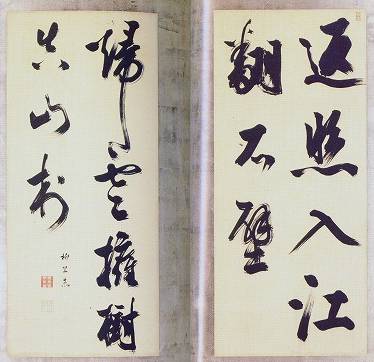 返照入江
翻石壁
歸雲擁樹
失山村